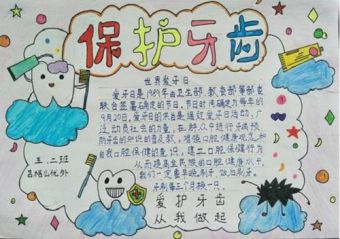 保护牙齿
世界爱牙日
爱牙日是1989年由卫生部、教委等部委
联合签署确定的节日,节日时间确定为每年的
9月20日,爱牙日的宗旨是通过爱牙日活动,广
泛动员社会的力量,在群众中进行牙病预
防知识的普及教育,增强口腔健康观念和
自我口腔保健的意识,建立口腔保健行为
从而提高全民族的口腔健康水平。
我们一定要早晚刷牙,饭后漱口。
牙刷每三个月换一只
五.二班
优外
爱护牙齿
从我做起